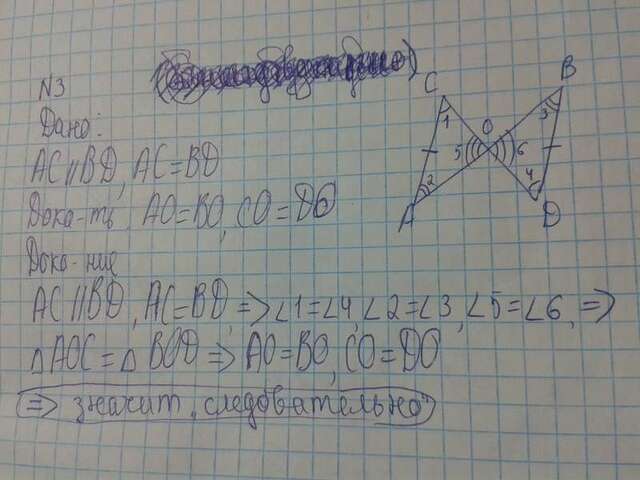 N3
Дано:
AC∥BD, AC=BD
Дока-ть AO=BO, CO=DO
Дока-ние
AC∥BD, AC=BD, => ∠1=∠4, ∠2=∠3, ∠5=∠6, =>
△AOC=△BOD => AO=BO, CO=DO
=> значит, следовательно
C
B
1
O
3
5
6
2
4
A
D